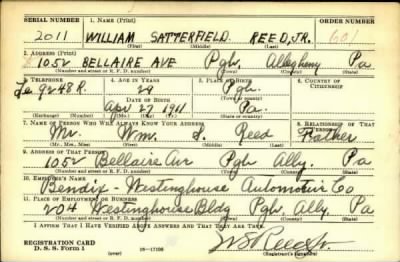 SERIAL NUMBER 1. NAME (Print) ORDER NUMBER
2011 WILLIAM SATTERFIELD REED, JR. 601
(First) (Middle) (Last)
2. ADDRESS (Print)
1052 BELLAIRE AVE Pgh. Allegheny Pa
(Number and street or R. F. D. number) (Town) (County) (State)
3. TELEPHONE 4. AGE IN YEARS 5. PLACE OF BIRTH 6. COUNTRY OF CITIZENSHIP
Le 9248R. 29 Pgh.
DATE OF BIRTH (Town or county)
Apr 27 1911 Pa.
(Exchange) (Number) (Mo.) (Day) (Yr.) (State or country)
7. NAME OF PERSON WHO WILL ALWAYS KNOW YOUR ADDRESS 8. RELATIONSHIP OF THAT PERSON
Mr. Wm. S. Reed Father
(Mr., Mrs., Miss) (First) (Middle) (Last)
9. ADDRESS OF THAT PERSON
1052 Bellaire Av Pgh Ally. Pa
(Number and street or R. F. D. number) (Town) (County) (State)
10. EMPLOYER'S NAME
Bendix - Westinghouse Automotive Co
11. PLACE OF EMPLOYMENT OR BUSINESS
204 Westinghouse Bldg Pgh. Ally. Pa
(Number and street or R. F. D. number) (Town) (County) (State)
I AFFIRM THAT I HAVE VERIFIED ABOVE ANSWERS AND THAT THEY ARE TRUE.
REGISTRATION CARD
D. S. S. Form 1 (over) 16-17105 (Registrant's signature)
W S Reed Jr.